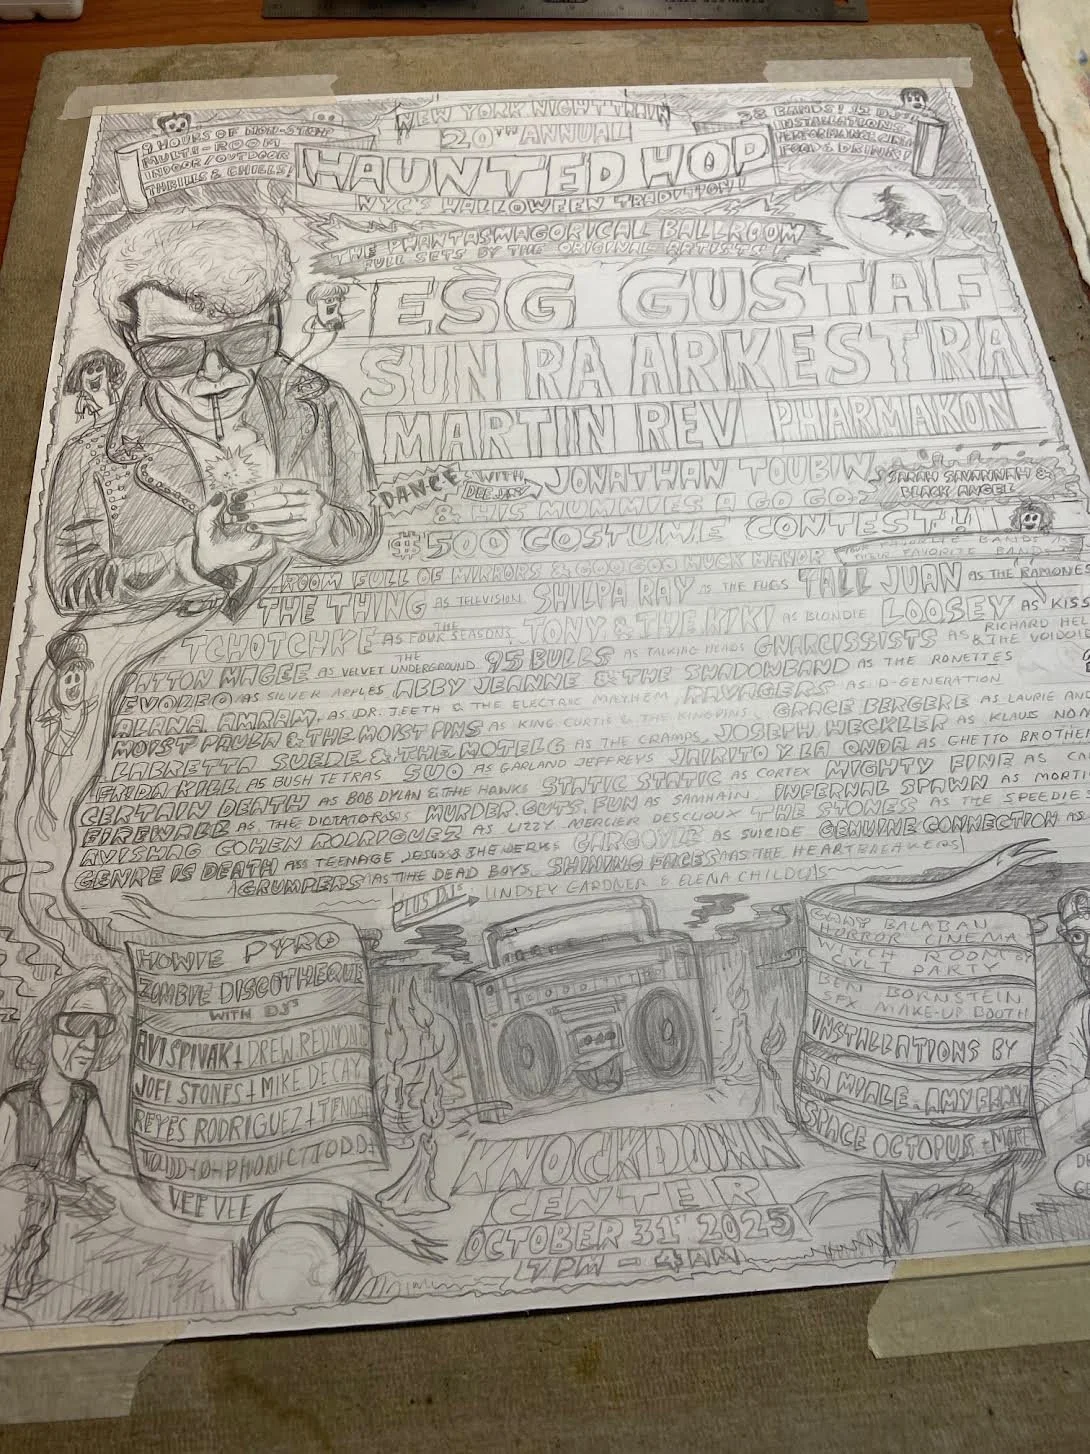 NEW YORK NIGHT TRAIN
20TH ANNUAL
HAUNTED HOP
NYC'S HALLOWEEN TRADITION!
9 HOURS OF NON-STOP
MULTI-ROOM
INDOOR/OUTDOOR
THRILLS & CHILLS!
38 BANDS! 12 DJS!
INSTALLATIONS,
PERFORMANCE,
FOOD & DRINK!
THE PHANTASMAGORICAL BALLROOM
FULL SETS BY THE ORIGINAL ARTISTS!
ESG GUSTAF
SUN RA ARKESTRA
MARTIN REV PHARMAKON
DANCE WITH DEEJAY JONATHAN TOUBIN
& HIS MUMMIES A GO GO: SARAH SAVANNAH & BLACK ANGEL
$500 COSTUME CONTEST!
YOUR FAVORITE BANDS AS
THEIR FAVORITE BANDS
ROOM FULL OF MIRRORS & GOO GOO MUCK MANOR
THE THING AS TELEVISION SHILPA RAY AS THE FUGS TALL JUAN AS THE RAMONES
TCHOTCHKE AS THE FOUR SEASONS TONY & THE KIKI AS BLONDIE LOOSEY AS KISS
PATTON MAGEE AS THE VELVET UNDERGROUND 95 BULLS AS TALKING HEADS GNARCISSISTS AS RICHARD HELL & THE VOIDOI
EVOLEO AS SILVER APPLES ABBY JEANNE & THE SHADOWBAND AS THE RONETTES
ALANA AMRAM AS DR. TEETH & THE ELECTRIC MAYHEM RAVAGERS AS D-GENERATION
MOIST PAULA & THE MOIST PINS AS KING CURTIS & THE KINGPINS GRACE BERGERE AS LAURIE AN
LABRETTA SUEDE & THE MOTEL 6 AS THE CRAMPS JOSEPH HECKLER AS KLAUS NOM
FRIDA KILL AS BUSH TETRAS SUO AS GARLAND JEFFREYS JAIRITO Y LA ONDA AS GHETTO BROTHER
CERTAIN DEATH AS BOB DYLAN & THE HAWKS STATIC STATIC AS CORTEX MIGHTY FINE AS CA
FIREWALL AS THE DICTATORS MURDER GUTS FUN AS SAMHAIN INFERNAL SPAWN AS MORTI
AVISHAG COHEN RODRIGUEZ AS LIZZY MERCIER DESCLOUX THE STONES AS THE SPEEDIES
GENRE IS DEATH AS TEENAGE JESUS & THE JERKS GARGOYLE AS SUICIDE GENUINE CONNECTION AS
GRUMPERS AS THE DEAD BOYS SHINING FACES AS THE HEARTBREAKERS
PLUS DJS LINDSEY GARDNER & ELENA CHILDUS
HOWIE PYRO
ZOMBIE DISCOTHEQUE
WITH DJ'S
AVI SPIVAK + DREW REDMOND
JOEL STONES + MIKE DECAY
REYES RODRIGUEZ + TENOS
TODD-O-PHONIC TODD +
VEE VEE
GARY BALABAN
HORROR CINEMA
WITCH ROOM BY
CVLT PARTY
BEN BORNSTEIN
SFX MAKE-UP BOOTH
INSTALLATIONS BY
SPACE OCTOPUS + MORE
KNOCKDOWN
CENTER
OCTOBER 31ST 2025
7PM - 4AM